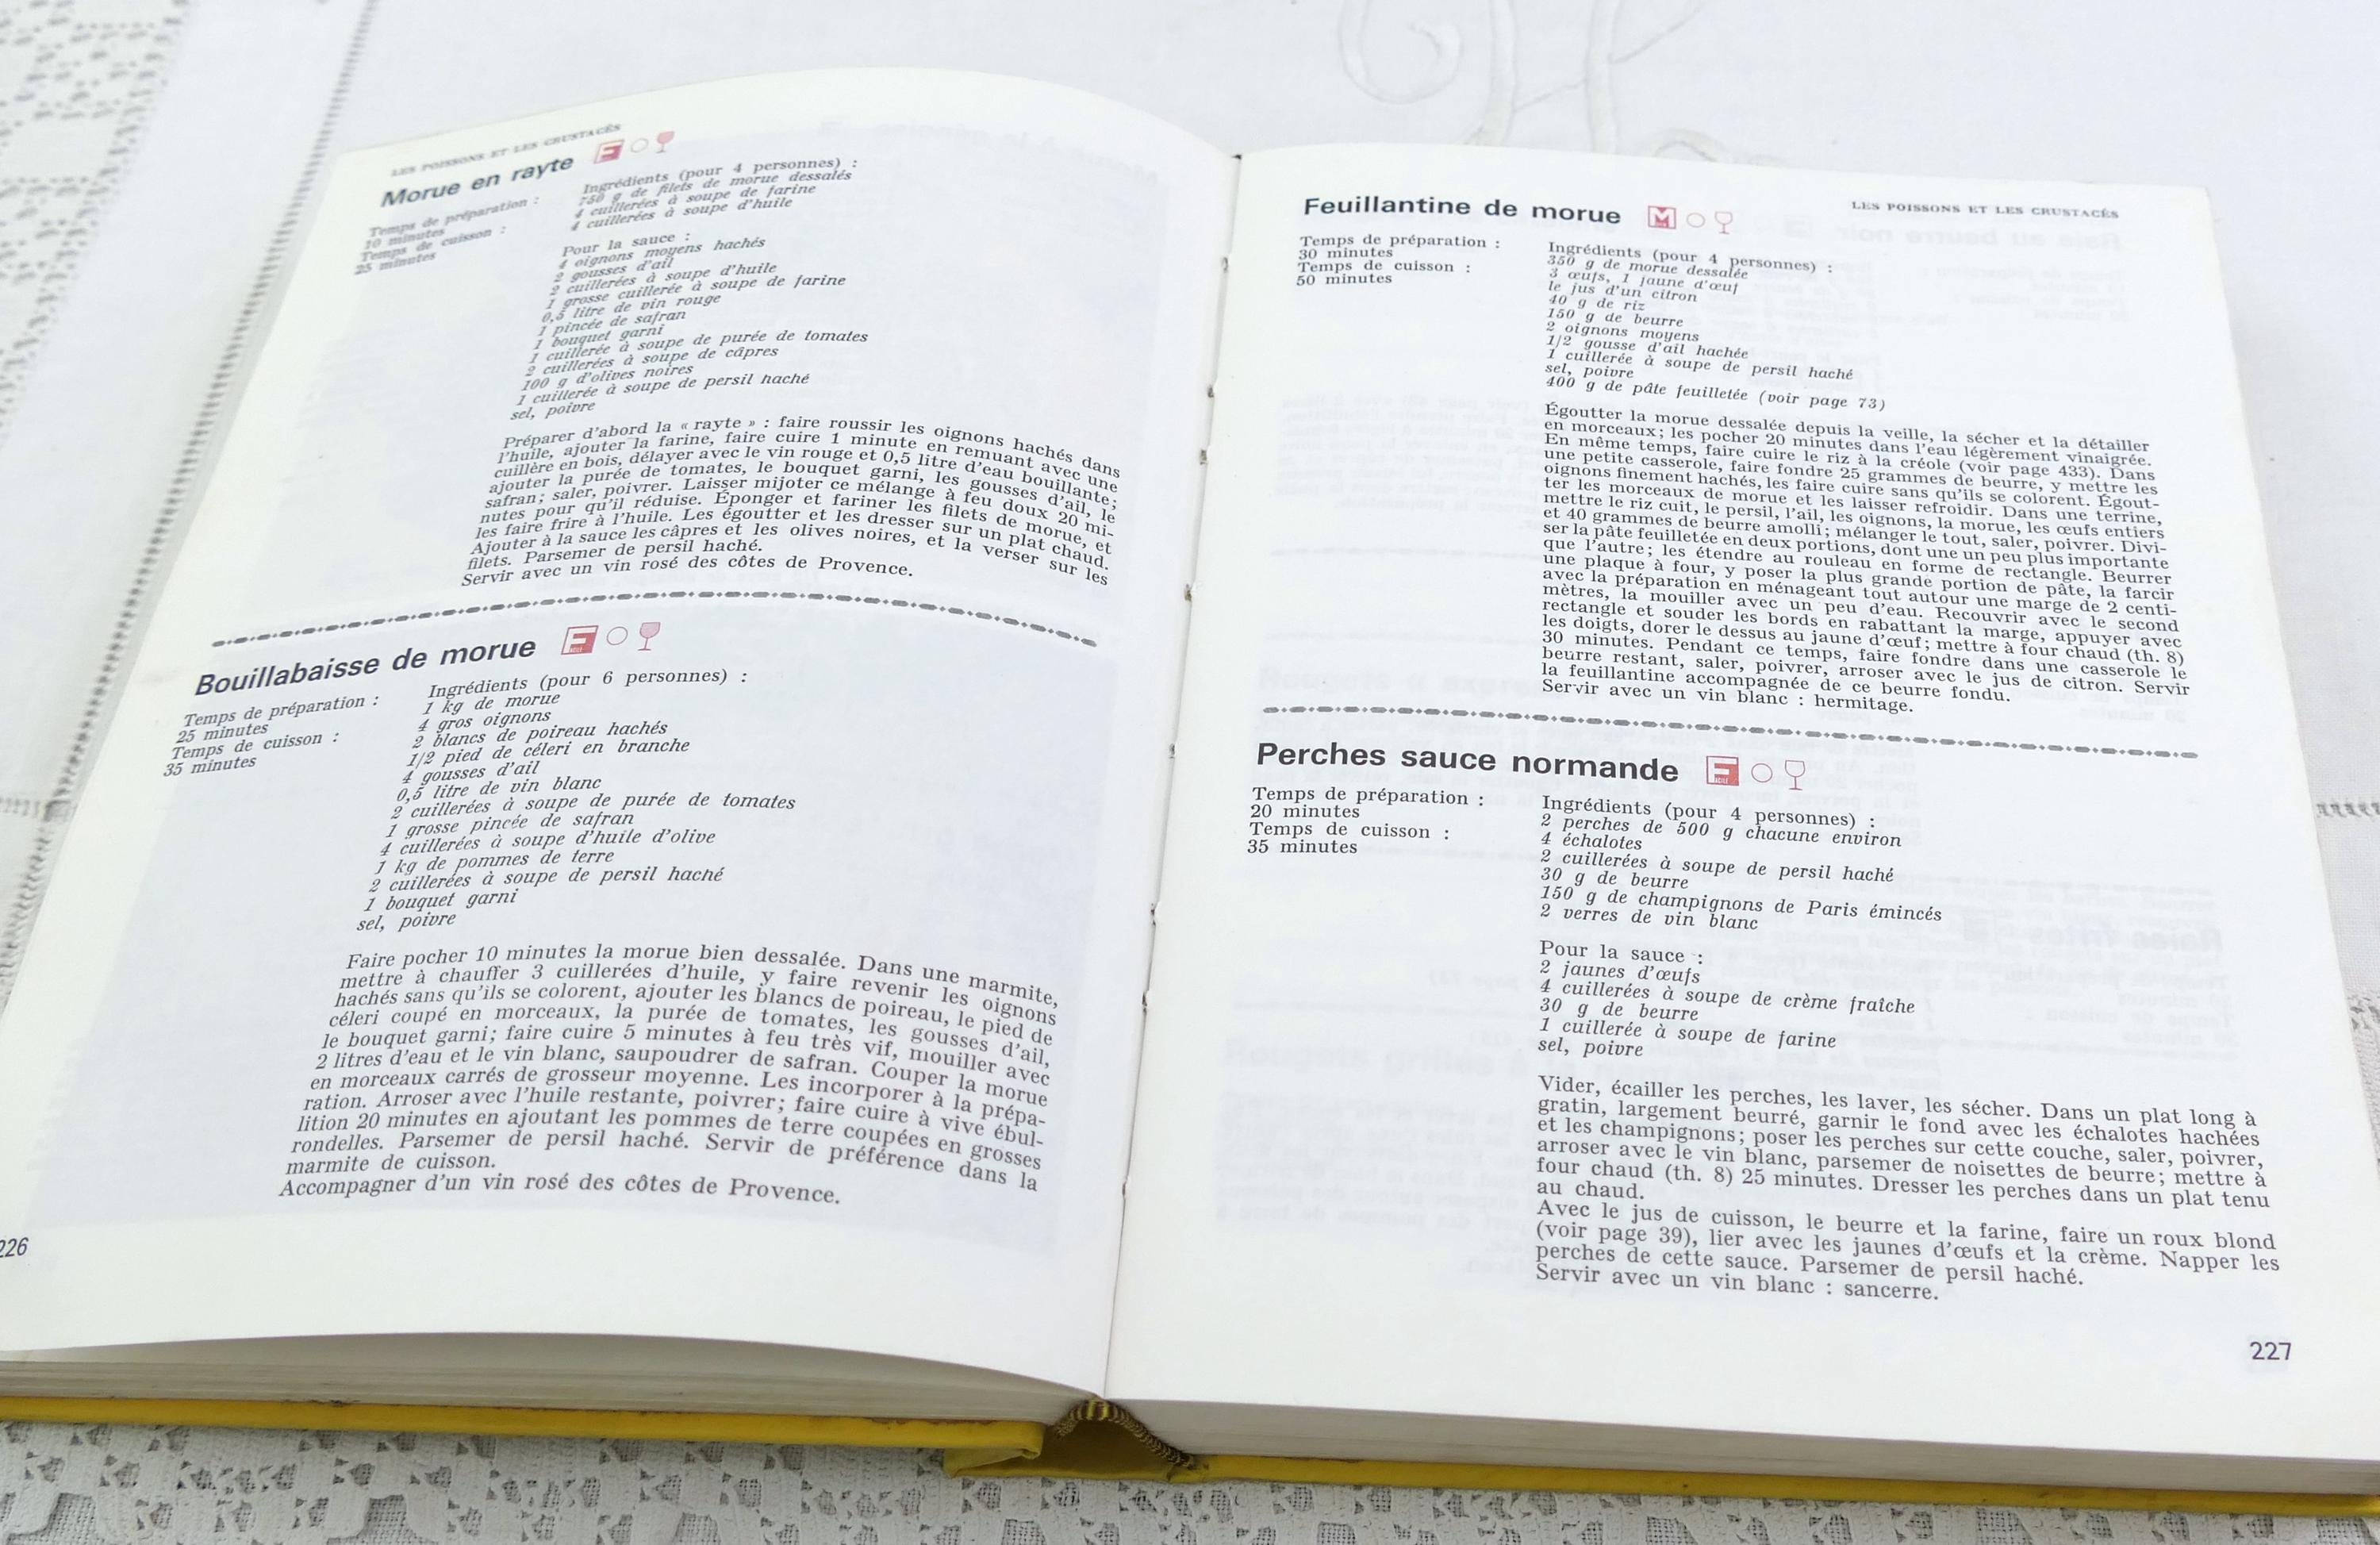 LES POISSONS ET LES CRUSTACÉS
Morue en rayte F
Temps de préparation :
10 minutes
Temps de cuisson :
25 minutes
Ingrédients (pour 4 personnes) :
750 g de filets de morue dessalés
4 cuillerées à soupe de farine
4 cuillerées à soupe d'huile
Pour la sauce :
4 oignons moyens hachés
2 gousses d'ail
2 cuillerées à soupe d'huile
1 grosse cuillerée à soupe de farine
0,5 litre de vin rouge
1 pincée de safran
1 bouquet garni
1 cuillerée à soupe de purée de tomates
2 cuillerées à soupe de câpres
100 g d'olives noires
1 cuillerée à soupe de persil haché
sel, poivre
Préparer d'abord la « rayte » : faire roussir les oignons hachés dans
l'huile, ajouter la farine, faire cuire 1 minute en remuant avec une
cuillère en bois, délayer avec le vin rouge et 0,5 litre d'eau bouillante;
ajouter la purée de tomates, le bouquet garni, les gousses d'ail, le
safran; saler, poivrer. Laisser mijoter ce mélange à feu doux 20 mi-
nutes pour qu'il réduise. Éponger et fariner les filets de morue, et
les faire frire à l'huile. Les égoutter et les dresser sur un plat chaud.
Ajouter à la sauce les câpres et les olives noires, et la verser sur les
filets. Parsemer de persil haché.
Servir avec un vin rosé des côtes de Provence.
Bouillabaisse de morue F
Temps de préparation :
25 minutes
Temps de cuisson :
35 minutes
Ingrédients (pour 6 personnes) :
1 kg de morue
4 gros oignons
2 blancs de poireau hachés
1/2 pied de céleri en branche
4 gousses d'ail
0,5 litre de vin blanc
2 cuillerées à soupe de purée de tomates
1 grosse pincée de safran
4 cuillerées à soupe d'huile d'olive
1 kg de pommes de terre
2 cuillerées à soupe de persil haché
1 bouquet garni
sel, poivre
Faire pocher 10 minutes la morue bien dessalée. Dans une marmite,
mettre à chauffer 3 cuillerées d'huile, y faire revenir les oignons
hachés sans qu'ils se colorent, ajouter les blancs de poireau, le pied de
céleri coupé en morceaux, la purée de tomates, les gousses d'ail,
le bouquet garni; faire cuire 5 minutes à feu très vif, mouiller avec
2 litres d'eau et le vin blanc, saupoudrer de safran. Couper la morue
en morceaux carrés de grosseur moyenne. Les incorporer à la prépa-
ration. Arroser avec l'huile restante, poivrer; faire cuire à vive ébul-
lition 20 minutes en ajoutant les pommes de terre coupées en grosses
rondelles. Parsemer de persil haché. Servir de préférence dans la
marmite de cuisson.
Accompagner d'un vin rosé des côtes de Provence.
226
LES POISSONS ET LES CRUSTACÉS
Feuillantine de morue M
Temps de préparation :
30 minutes
Temps de cuisson :
50 minutes
Ingrédients (pour 4 personnes) :
350 g de morue dessalée
3 œufs, 1 jaune d'œuf
le jus d'un citron
40 g de riz
150 g de beurre
2 oignons moyens
1/2 gousse d'ail hachée
1 cuillerée à soupe de persil haché
sel, poivre
400 g de pâte feuilletée (voir page 73)
Égoutter la morue dessalée depuis la veille, la sécher et la détailler
en morceaux; les pocher 20 minutes dans l'eau légèrement vinaigrée.
En même temps, faire cuire le riz à la créole (voir page 433). Dans
une petite casserole, faire fondre 25 grammes de beurre, y mettre les
oignons finement hachés, les faire cuire sans qu'ils se colorent. Égout-
ter les morceaux de morue et les laisser refroidir. Dans une terrine,
mettre le riz cuit, le persil, l'ail, les oignons, la morue, les œufs entiers
et 40 grammes de beurre amolli; mélanger le tout, saler, poivrer. Divi-
ser la pâte feuilletée en deux portions, dont une un peu plus importante
que l'autre; les étendre au rouleau en forme de rectangle. Beurrer
une plaque à four, y poser la plus grande portion de pâte, la farcir
avec la préparation en ménageant tout autour une marge de 2 centi-
mètres, la mouiller avec un peu d'eau. Recouvrir avec le second
rectangle et souder les bords en rabattant la marge, appuyer avec
les doigts, dorer le dessus au jaune d'œuf; mettre à four chaud (th. 8)
30 minutes. Pendant ce temps, faire fondre dans une casserole le
beurre restant, saler, poivrer, arroser avec le jus de citron. Servir
la feuillantine accompagnée de ce beurre fondu.
Servir avec un vin blanc : hermitage.
Perches sauce normande F
Temps de préparation :
20 minutes
Temps de cuisson :
35 minutes
Ingrédients (pour 4 personnes) :
2 perches de 500 g chacune environ
4 échalotes
2 cuillerées à soupe de persil haché
30 g de beurre
150 g de champignons de Paris émincés
2 verres de vin blanc
Pour la sauce :
2 jaunes d'œufs
4 cuillerées à soupe de crème fraîche
30 g de beurre
1 cuillerée à soupe de farine
sel, poivre
Vider, écailler les perches, les laver, les sécher. Dans un plat long à
gratin, largement beurré, garnir le fond avec les échalotes hachées
et les champignons; poser les perches sur cette couche, saler, poivrer,
arroser avec le vin blanc, parsemer de noisettes de beurre; mettre à
four chaud (th. 8) 25 minutes. Dresser les perches dans un plat tenu
au chaud.
Avec le jus de cuisson, le beurre et la farine, faire un roux blond
(voir page 39), lier avec les jaunes d'œufs et la crème. Napper les
perches de cette sauce. Parsemer de persil haché.
Servir avec un vin blanc : sancerre.
227